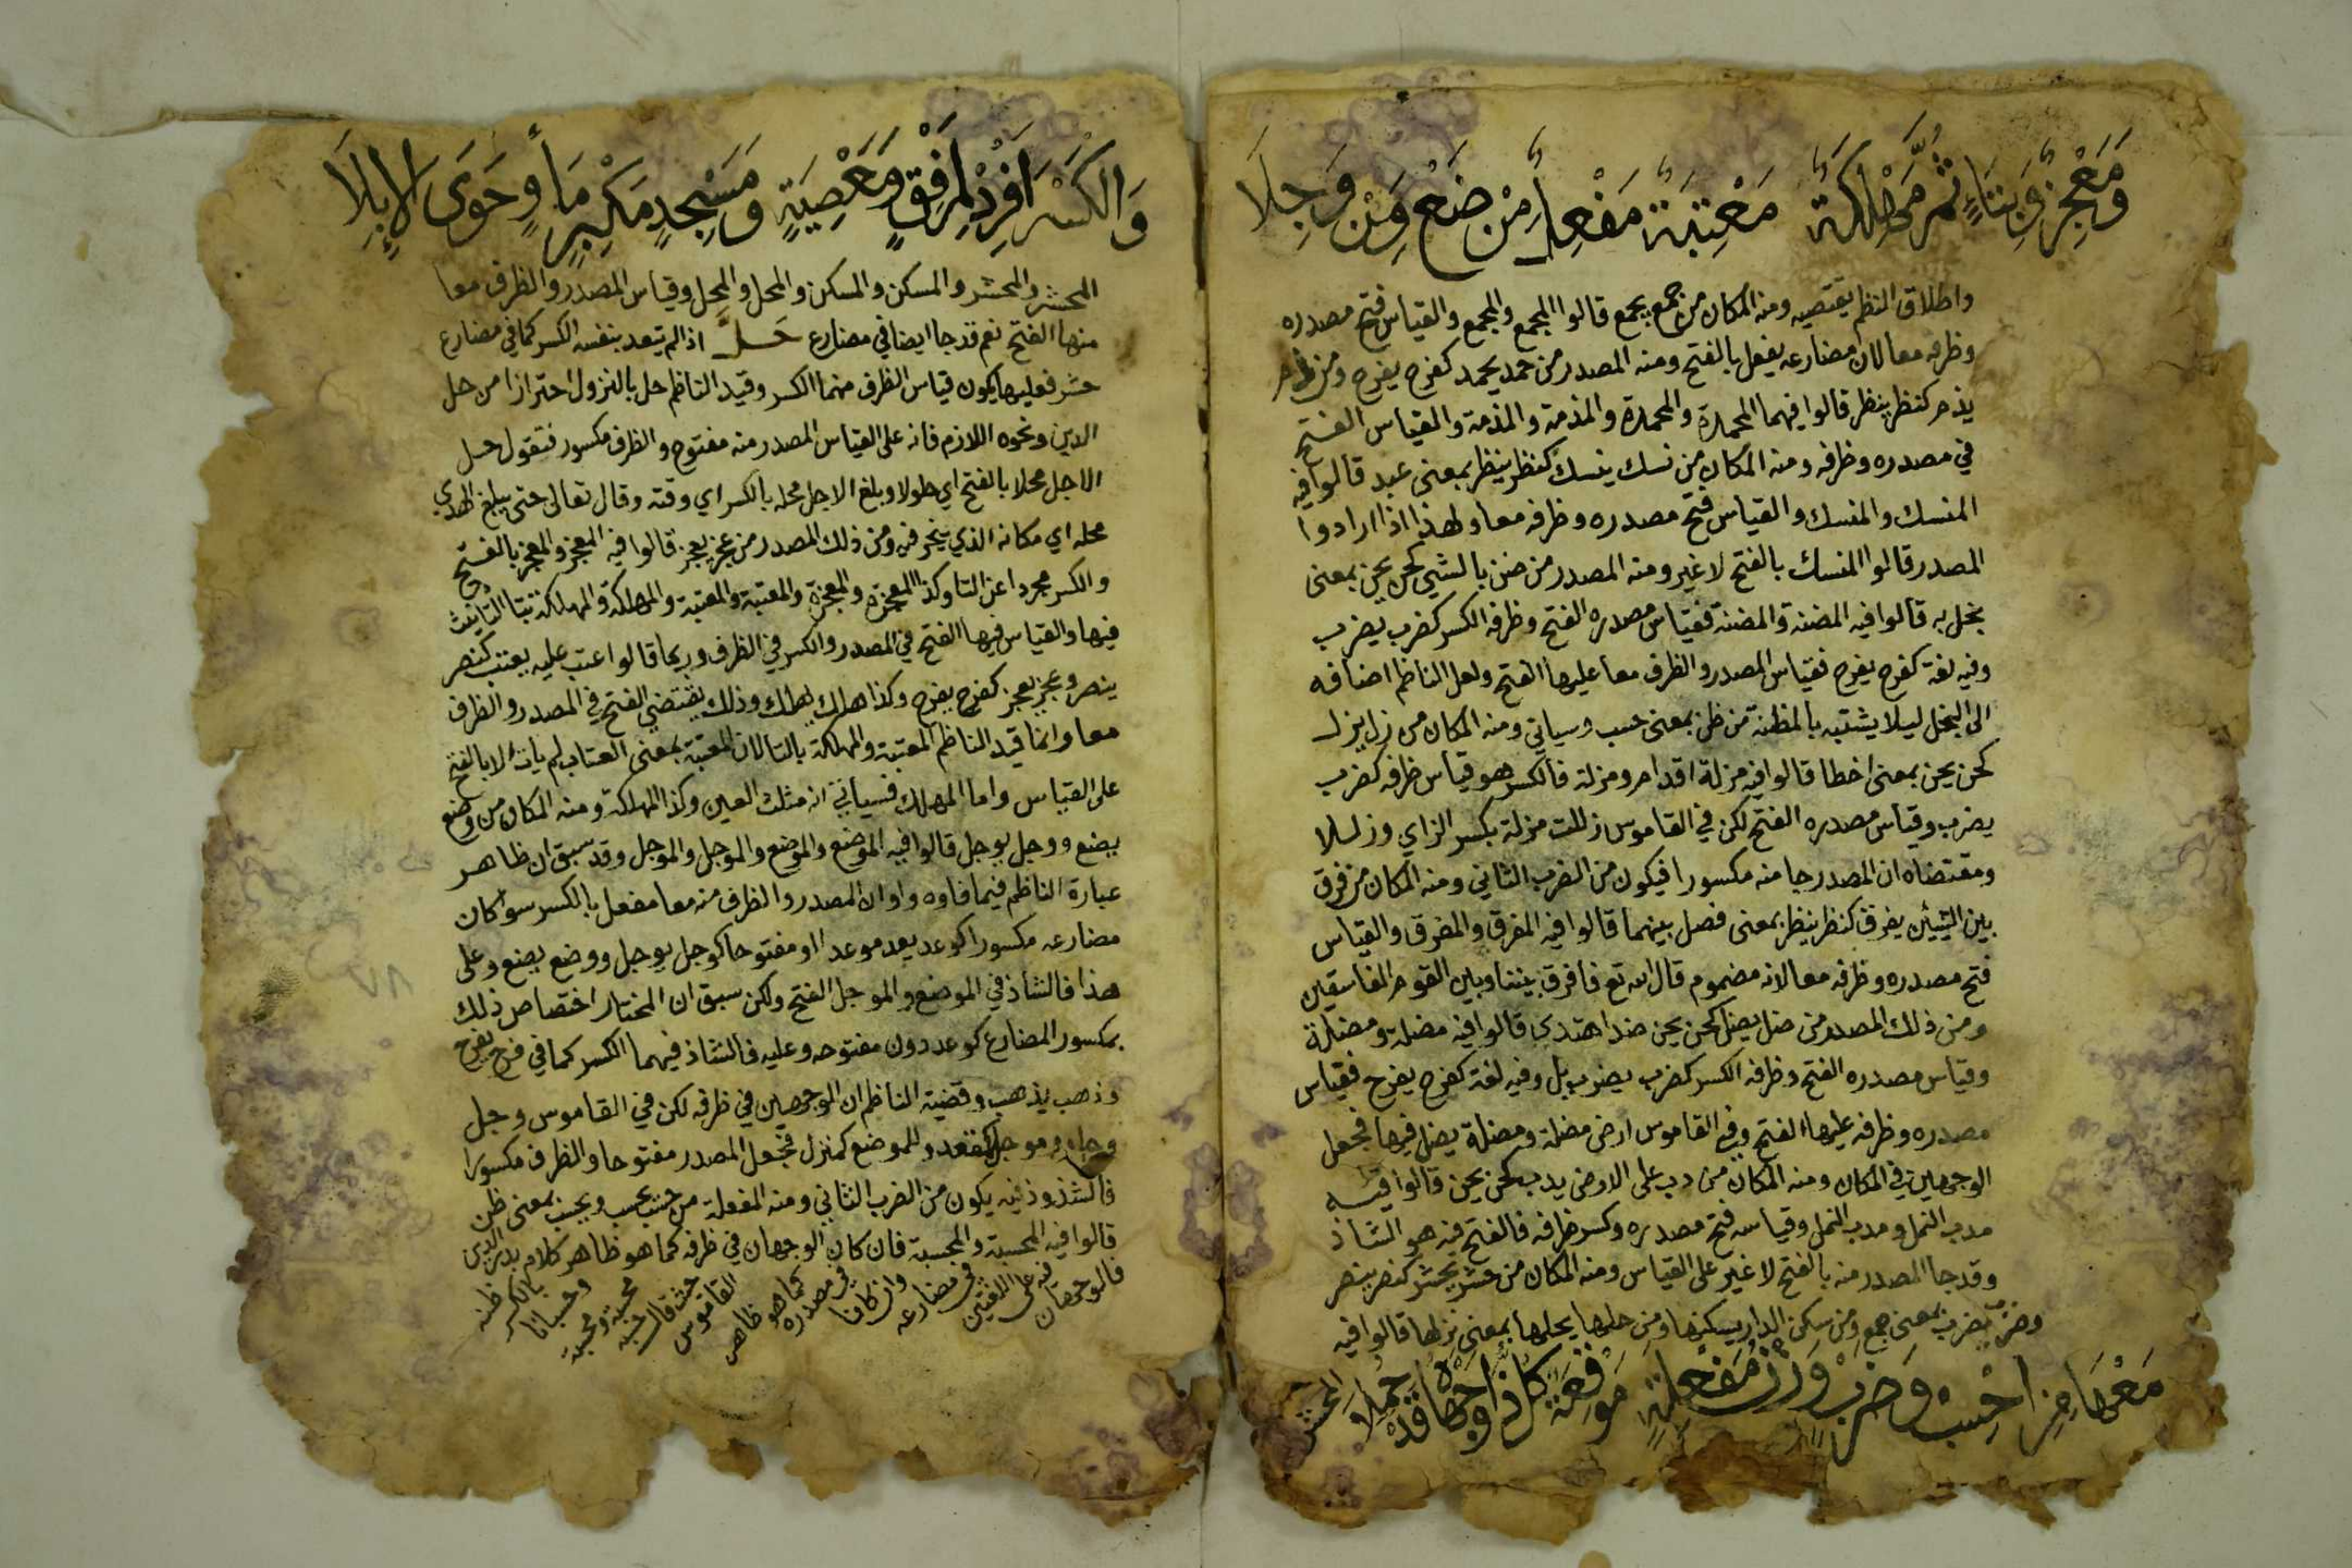 وَمَعْجِزٌ وَبِتَاءٍ ثُمَّ مَهْلِكَةٌ مَعْتِبَةٌ مَفْعِلٌ مِنْ ضَعْ وَمِنْ وَجِلَا
واطلاق النظم يقتضيه ومنه المكان من جمع يجمع قالوا المجمع والمجمع والقياس فتح مصدره
وظرفه معا لان مضارعه يفعل بالفتح ومنه المصدر من حمد يحمد كفرح يفرح ومن ذم
يذم كنظر ينظر قالوا فيهما المحمدة والمحمدة والمذمة والمذمة والقياس الفتح
في مصدره وظرفه ومنه المكان من نسك ينسك كنظر ينظر بمعنى عبد قالوا فيه
المنسك والمنسك والقياس فتح مصدره وظرفه معا ولهذا اذا ارادوا
المصدر قالوا المنسك بالفتح لا غير ومنه المصدر من ضن بالشي كحن يحن بمعنى
بخل به قالوا فيه المضنة والمضنة فقياس مصدره الفتح وظرفه الكسر كضرب يضرب
وفيه لغة كفرح يفرح فقياس المصدر والظرف معا عليها الفتح ولعل الناظم اضافه
الى البخل ليلا يشتبه بالمظنة من ظن بمعنى حسب وسياتي ومنه المكان من زل يزل
كحن يحن بمعنى اخطا قالوا فيه مزلة اقدام ومزلة فالكسر هو قياس ظرفه كضرب
يضرب وقياس مصدره الفتح لكن في القاموس زللت مزلة بكسر الزاي وزللا
ومقتضاه ان المصدر جا منه مكسورا فيكون من الضرب الثاني ومنه المكان من فرق
بين الشيئين يفرق كنظر ينظر بمعنى فصل بينهما قالوا فيه المفرق والمفرق والقياس
فتح مصدره وظرفه معا لانه مضموم قال الله تع فافرق بيننا وبين القوم الفاسقين
ومن ذلك المصدر من ضل يضل كحن يحن ضد اهتدى قالوا فيه مضلة ومضلة
وقياس مصدره الفتح وظرفه الكسر كضرب يضرب بل وفيه لغة كفرح يفرح فقياس
مصدره وظرفه عليها الفتح وفي القاموس ارض مضلة ومضلة يضل فيها فجعل
الوجهين في المكان ومنه المكان من دب على الارض يدب كحن يحن قالوا فيه
مدب النمل ومدب النمل وقياسه فتح مصدره وكسر ظرفه فالفتح فيه هو الشاذ
وقد جا المصدر منه بالفتح لا غير على القياس ومنه المكان من حشر يحشر كنصر ينصر
وضرب يضرب بمعنى جمع ومن سكن الدار يسكنها ومن حلها يحلها بمعنى نزلها قالوا فيه
مَعْهَا مِنِ احْسِبْ وَضَرْبٍ وَزْنُ مَفْعِلَةٍ مَوْقِعَةٌ كُلُّ ذَا وَجْهَاهُ قَدْ حُمِلَا
المحشر
وَالْكَسْرَ اَفْرِدْ لِمَرْفِقٍ وَمَعْصِيَةٍ وَمَسْجِدٍ مَكْبِرٍ مَأْوٍ حَوَى الإِبِلَا
المحشر والمحشر والمسكن والمسكن والمحل والمحل وقياس المصدر والظرف معا
منها الفتح نعم قد جا ايضا في مضارع حَلَّ اذا لم يتعد بنفسه الكسر كما في مضارع
حشر فعليها يكون قياس الظرف منهما الكسر وقيد الناظم حل بالنزول احترازا من حل
الدين ونحوه اللازم فانه على القياس المصدر منه مفتوح والظرف مكسور فتقول حل
الاجل محلا بالفتح اي حلولا وبلغ الاجل محله بالكسر اي وقته وقال تعالى حتى يبلغ الهدي
محله اي مكانه الذي ينحر فيه ومن ذلك المصدر من عجز يعجز قالوا فيه المعجز والمعجز بالفتح
والكسر مجردا عن التا وكذا المعجزة والمعجزة والمعتبة والمعتبة والمهلكة والمهلكة بتا التانيث
فيها والقياس فيها الفتح في المصدر والكسر في الظرف وربما قالوا عتب عليه يعتب كنصر
ينصر وعجز يعجز كفرح يفرح وكذا هلك يهلك وذلك يقتضي الفتح في المصدر والظرف
معا وانما قيد الناظم المعتبة والمهلكة بالتا لان المعتبة بمعنى العتاب لم يات الا بالفتح
على القياس واما المهلك فسياتي انه مثلث العين وكذا المهلكة ومنه المكان من وضع
يضع ووجل يوجل قالوا فيه الموضع والموضع والموجل والموجل وقد سبق ان ظاهر
عبارة الناظم فيما فاوه واو ان المصدر والظرف منه معا مفعل بالكسر سوا كان
مضارعه مكسورا كوعد يعد موعدا او مفتوحا كوجل يوجل ووضع يضع وعلى
هذا فالشاذ في الموضع والموجل الفتح ولكن سبق ان المختار اختصاص ذلك
بمكسور المضارع كوعد دون مفتوحه وعليه فالشاذ فيهما الكسر كما في فرح يفرح
وذهب يذهب وقضية الناظم ان الوجهين في ظرفه لكن في القاموس وجل
وجلا وموجلا كمقعد وللموضع كمنزل فجعل المصدر مفتوحا والظرف مكسورا
فالشذوذ فيه يكون من الضرب الثاني ومنه المفعلة من حسب يحسب ويحسب بمعنى ظن
قالوا فيه المحسبة والمحسبة فان كان الوجهان في ظرفه كما هو ظاهر كلام بدر الدين
فالوجهان فيه على اللغتين في مضارعه وان كانا في مصدره كما هو ظاهر القاموس حيث قال حسبه محسبة ومحسبة وحسبانا بالكسر ظنه